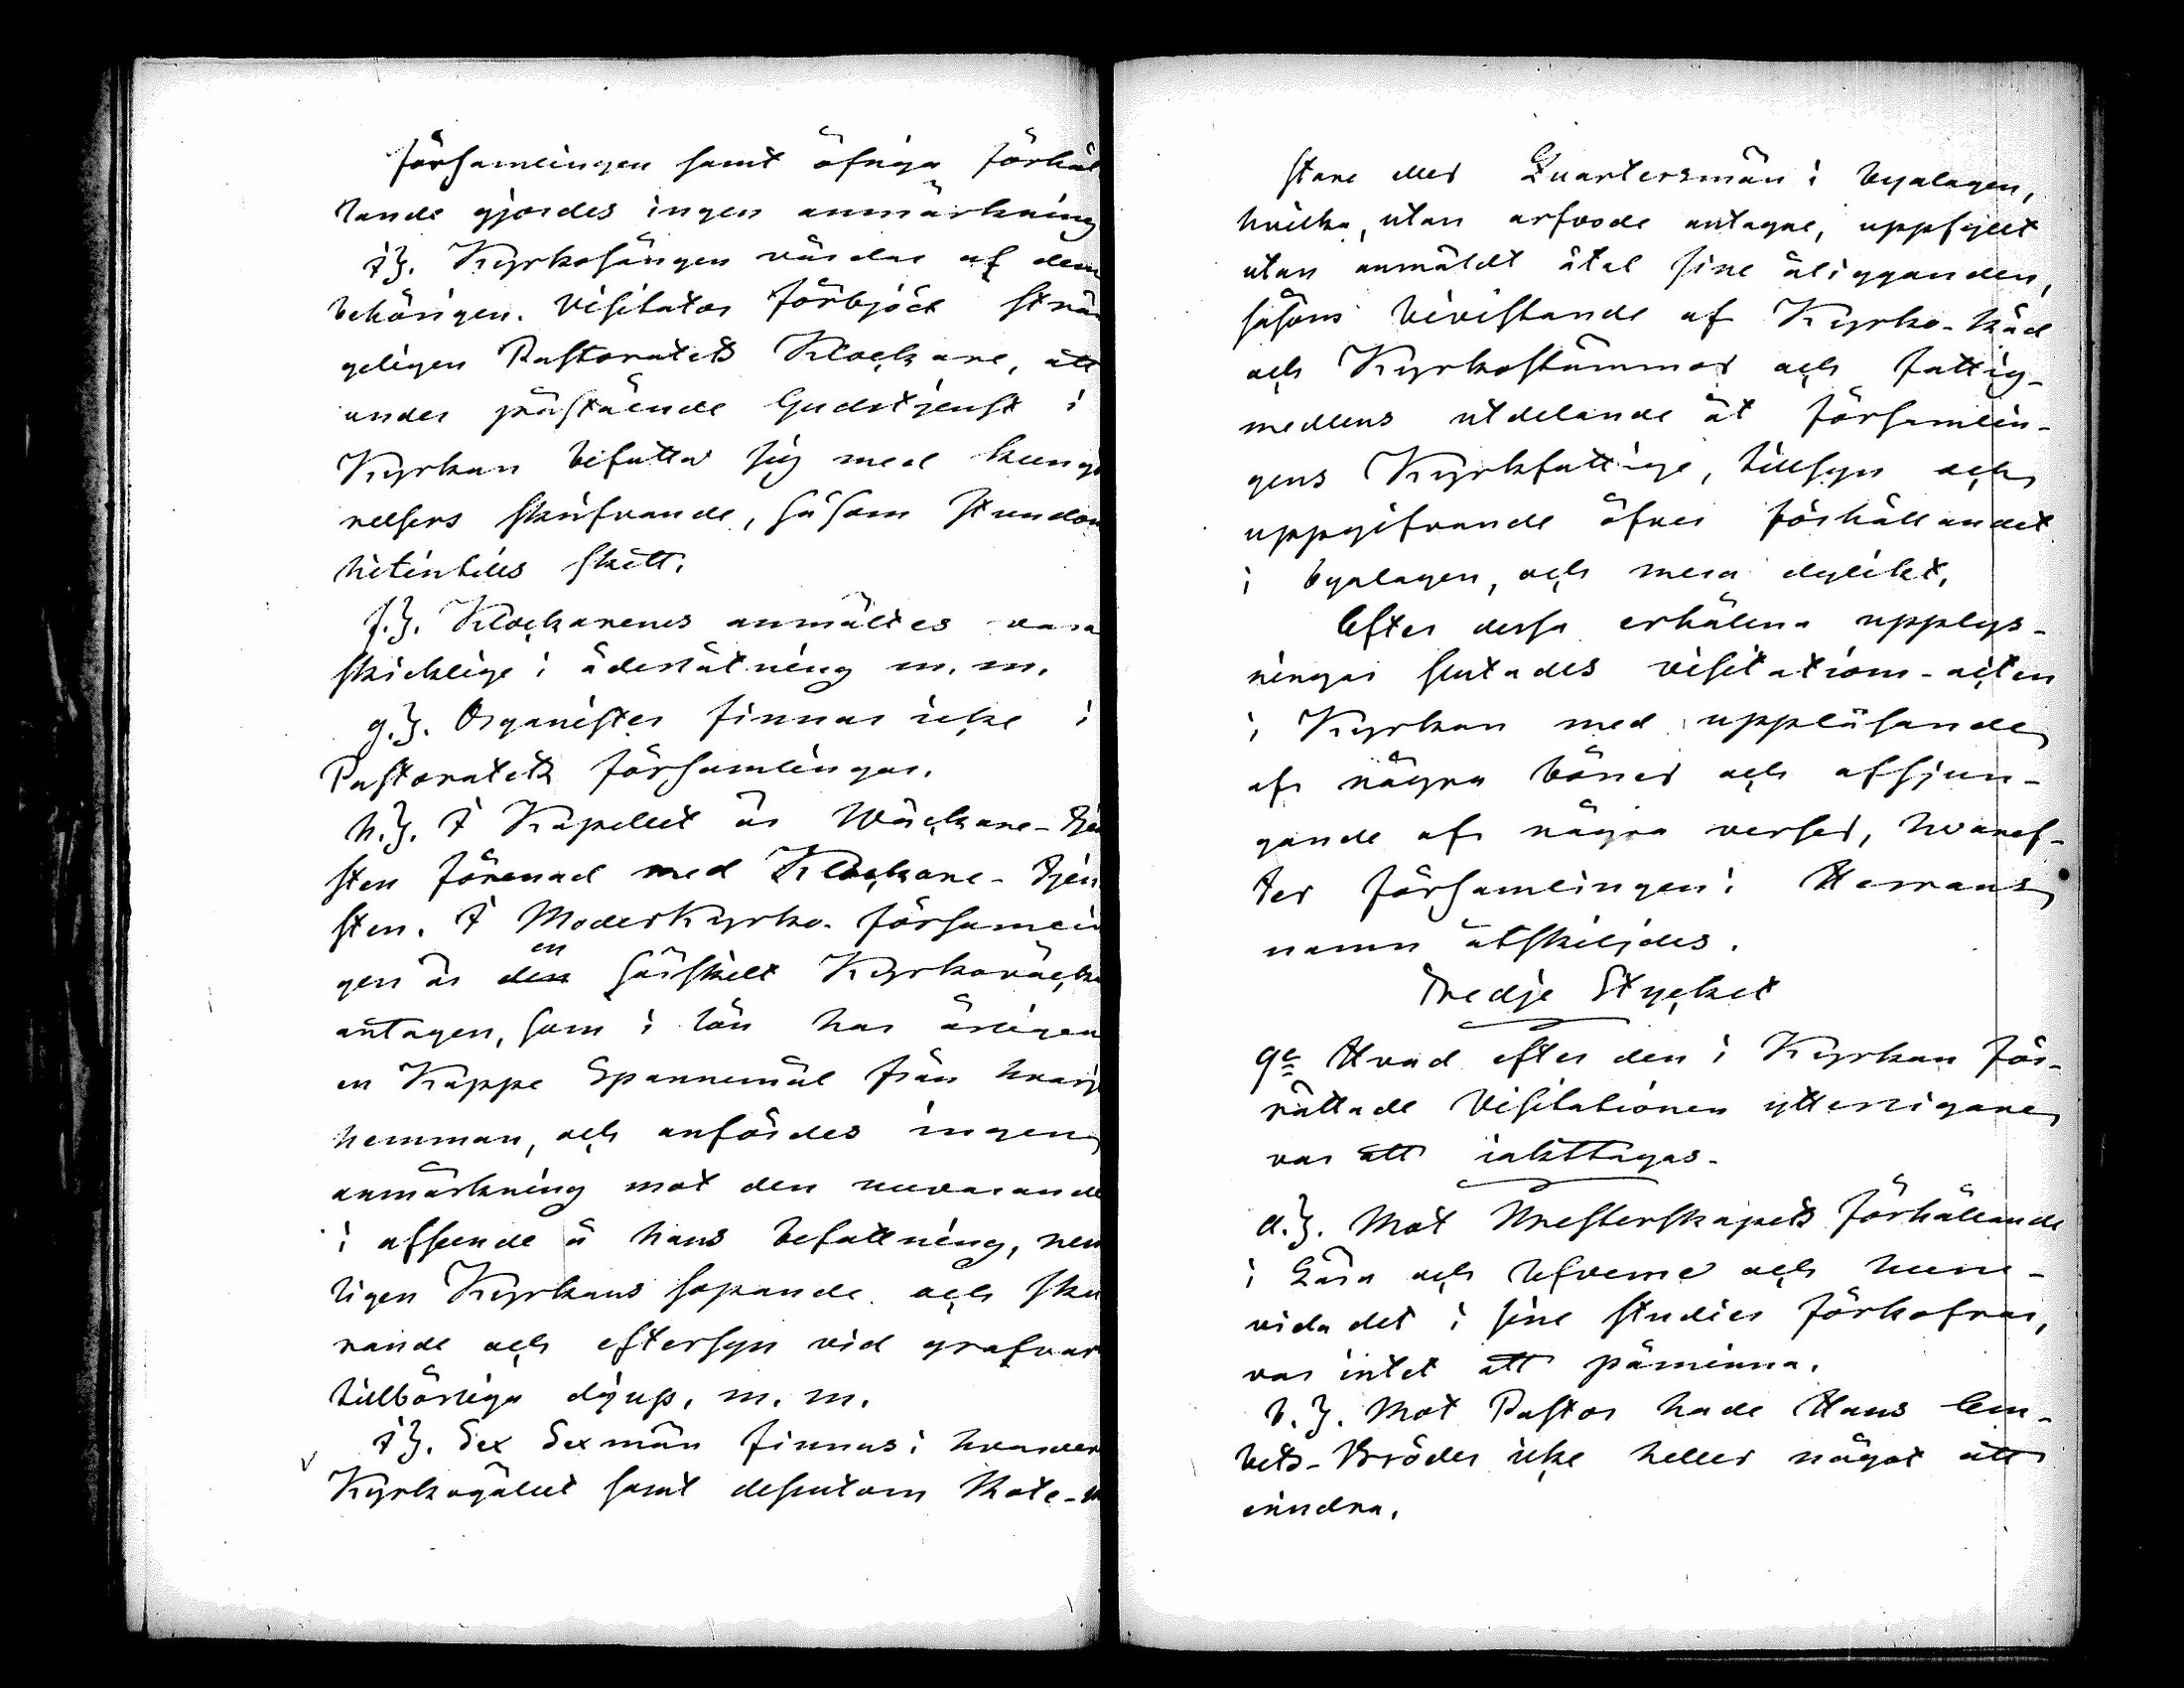 församlingen samt öfriga förhål
lande gjordes ingen anmärkning
Kyrkosången vårdas af dem
behörigen. Visitator förbjöd strän
geligen Pastoratets Klockare, att
under påstående Gudstjenst i
Kyrkan befatta sig med kungö
relsers skrifvande, såsom stundom
hitintills skett.
f.). Klockarenes anmältes vara
skicklige i åderlåtning m. m.
g.). Organister finnas icke i
Pastoratets församlingar.
h.). I Kapellet är Wäckare-tjen
sten förenad med Klockare-tjen
sten. I Moderkyrko-församlin
gen är en särskilt Kyrkoväcka
antagen, som i lön har årligen
en Kappe Spannemål från hvarj
hemman, och anfördes ingen
anmärkning mot den nuvarande
i afseende å hans befattning, nem
ligen Kyrkans sopande och sku
rande och eftersyn vid grafvar
tillbörliga djup, m. m.
i). Sex Sexmän finnas i hvardera
Kyrkogället samt dessutom Rote-m
stare eller Quartersmän i byalagen,
hvilka, utan arfvode antagne, uppfyllt
utan anmäldt åtal sine åligganden,
såsom bivistande af Kyrko-Råd
och Kyrkostämmor och fattig-
medlens utdelande åt församlin-
gens Kyrkfattige, tillsyn och
uppgifvande öfver förhållandet
i byalagen, och mera dylikt.
Efter dessa erhållna upplys-
ningar slutades visitations-acten
i Kyrkan med uppläsande
af några böner och afsjun-
gande af några verser, hvaref-
ter församlingen i Herrans
namn åtskiljdes.
Tredje Stycket
Hvad efter den i Kyrkan för-
rättade Visitationen ytterligare
var att iakttagas.
a.). Mot Presterskapets förhållande
i Lära och lefverne och huru-
vida det i sine studier förkofras,
var intet att påminna.
b.). Mot Pastor hade Hans Em-
bets-Bröder icke heller något att
erindra.